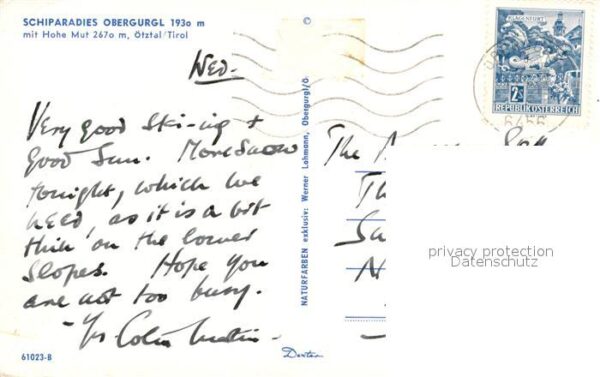 SCHIPARADIES OBERGURGL 193o m
mit Hohe Mut 267o m, Ötztal/Tirol
Wed.
Very good Ski-ing +
Good Sun. More Snow
tonight, which we
need, as it is a bit
thin on the lower
Slopes. Hope you
are not too busy.
- Yrs Colin
61023-B
©
NATURFARBEN exklusiv: Werner Lohmann, Obergurgl/Ö.
KLAGENFURT
2 S
REPUBLIK ÖSTERREICH
6456
The
Th
Sa
privacy protection
Datenschutz